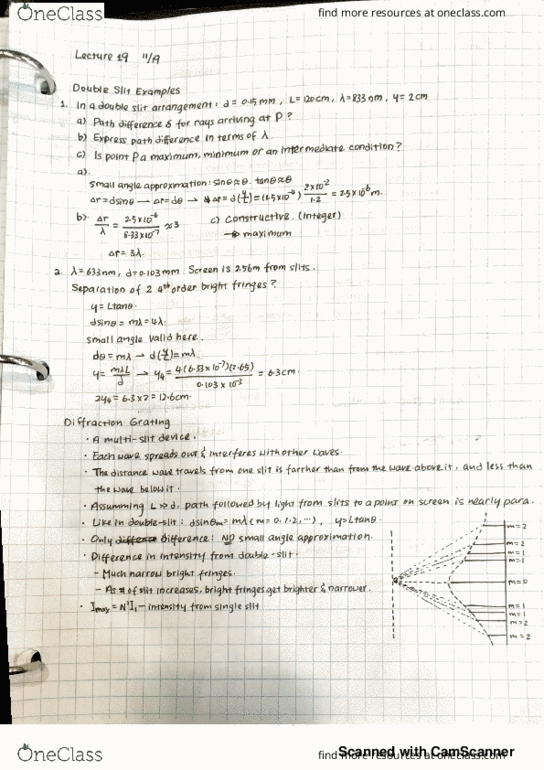 OneClass
find more resources at oneclass.com
Lecture 19 11/9
Double Slit Examples
1. In a double slit arrangement: d = 0.15 mm, L = 120 cm, λ = 833 nm, y = 2 cm
a) Path difference δ for rays arriving at P?
b) Express path difference in terms of λ
c) Is point P a maximum, minimum or an intermediate condition?
a).
small angle approximation: sinθ≈θ. tanθ≈θ
Δr = dsinθ → Δr = dθ → Δr = d(y/L) = (1.5×10⁻⁴) 2×10⁻²/1.2 = 2.5×10⁻⁶ m.
b) Δr/λ = 2.5×10⁻⁶/8.33×10⁻⁷ ≈ 3 c) Constructive. (integer)
→ maximum
Δr = 3λ.
2. λ = 633 nm, d = 0.103 mm. Screen is 2.56m from slits.
Separation of 2 4th order bright fringes?
y = Ltanθ.
dsinθ = mλ = 4λ.
small angle valid here.
dθ = mλ → d(y/L) = mλ.
y = mλL/d → y₄ = 4(6.33×10⁻⁷)(2.65)/0.103×10⁻³ = 6.3cm.
2y₄ = 6.3×2 = 12.6cm.
Diffraction Grating
· A multi-slit device.
· Each wave spreads out & interferes with other waves.
· The distance wave travels from one slit is farther than from the wave above it, and less than
the wave below it.
· Assuming L >> d, path followed by light from slits to a point on screen is nearly para.
· Like in double-slit: dsinθm = mλ (m = 0, 1, 2, ...), y = Ltanθ.
· Only difference: NO small angle approximation.
· Difference in intensity from double-slit.
- Much narrow bright fringes.
- As # of slit increases, bright fringes get brighter & narrower.
· Imax = N²I₁ - intensity from single slit
m=2
m=2
m=1
m=1
m=0
m=1
m=1
m=2
m=2
OneClass
find more resources at oneclass.com
Scanned with CamScanner